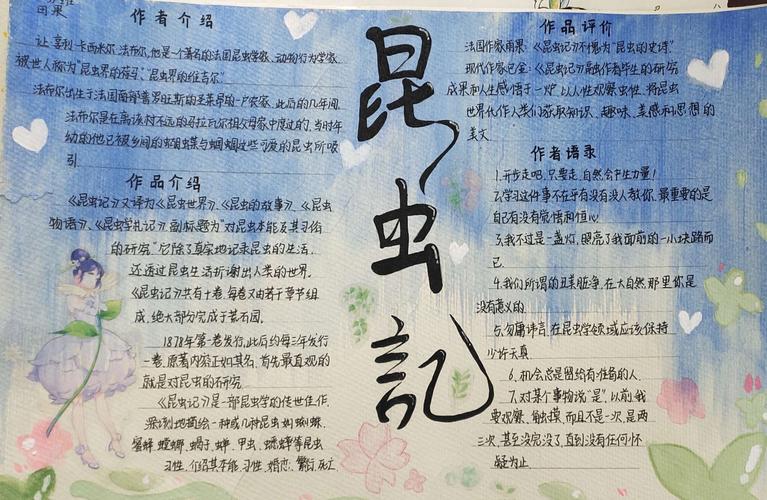 田果
作者介绍
让·亨利·卡西米尔·法布尔,他是个著名的法国昆虫学家、动物行为学家
被世人称为“昆虫界的荷马”“昆虫界的维吉尔”
法布尔出生于法国南部普罗旺斯的圣莱昂的一户农家,此后的几年间
法布尔是在离该村不远的马拉瓦尔祖父母家中度过的,当时年
幼的他已被乡间的蝴蝶与蝈蝈这些可爱的昆虫所吸
引.
作品介绍
《昆虫记》又译为《昆虫世界》、《昆虫的故事》、《昆虫
物语》、《昆虫学札记》,副标题为“对昆虫本能及其习俗
的研究”它除了真实地记录昆虫的生活,
还透过昆虫生活折谢出人类的世界。
《昆虫记》共有十卷,每卷又由若干章节组
成,绝大部分完成于荒石园.
1878年第一卷发行,此后约每三年发行
一卷.原著内容正如其名,首先最直观的
就是对昆虫的研究
《昆虫记》是一部昆虫学的传世佳作,
深刻地描绘一种或几种昆虫如蜘蛛、
蜜蜂、螳螂、蝎子、蝉、甲虫、蟋蟀等昆虫
习性,介绍其本能、习性、婚恋、繁衍、死亡
昆虫記
作品评价
法国作家雨果:《昆虫记》不愧为“昆虫的史诗”
现代作家巴金:《昆虫记》融作者毕生的研究
成果和人生感悟于一炉,以人性观察虫性,将昆虫
世界化作人类们获取知识、趣味、美感和思想的
美文.
作者语录
1.开步走吧,只要走,自然会产生力量!
2.学习这件事不在乎有没有没人教你,最重要的是
自己有没有觉悟和恒心
3.我不过是一盏灯,照亮了我面前的一小块路而
已
4.我们所谓的丑美脏净,在大自然那里你是
没有意义的
5.勿庸讳言,在昆虫学领域应该保持
少许天真
6.机会总是留给有准备的人.
7.对某个事物说“是”,以前,我
要观察、触摸,而且不是一次,是两
三次,甚至没完没了,直到没有任何怀
疑为止